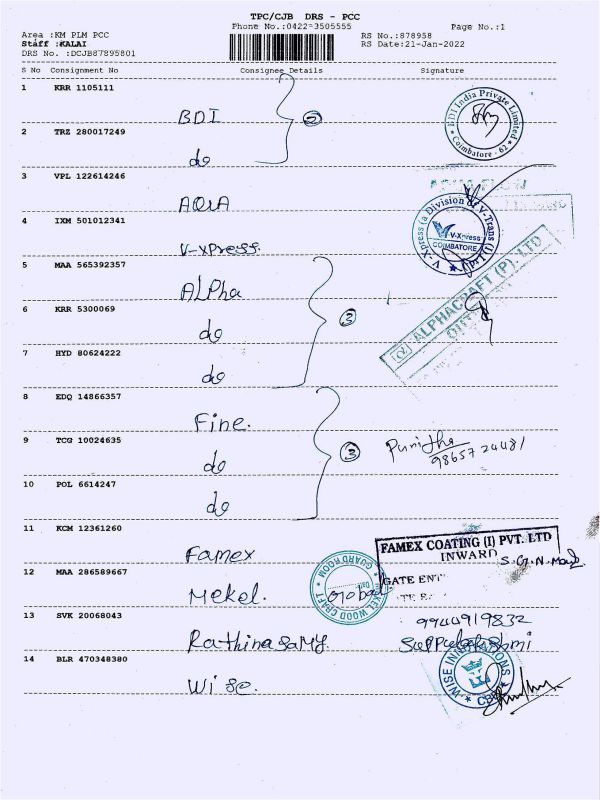 TPC/CJB DRS - PCC
Phone No.:0422-3505555
Page No.:1
Area :KM PLM PCC
RS No.:878958
Staff :KALAI
RS Date:21-Jan-2022
DRS No. :DCJB87895801
S No Consignment No Consignee Details Signature
1 KRR 1105111
BDI
2
EDI India Private Limited
Coimbatore - 62
2 TRZ 280017249
do
3 VPL 122614246
AQUA
4 IXM 501012341
V-XPress
V-Xpress (a Division of V-Trans (I)
V-Xpress
COIMBATORE
5 MAA 565392357
ALPha
ALPHACRAFT (P) LTD
6 KRR 5300069
do
3
7 HYD 80624222
do
8 EDQ 14866357
Fine.
9 TCG 10024635
do
3
Punitha
98657 24481
10 POL 6614247
do
11 KCM 12361260
Famex
FAMEX COATING (I) PVT. LTD
INWARD
12 MAA 286589667
Mekel.
GUARD ROOM
MEKEL WOOD CRAFT
GATE ENT
13 SVK 20068043
RathinaSaMy.
9944919832
14 BLR 470348380
Wise.
WISE